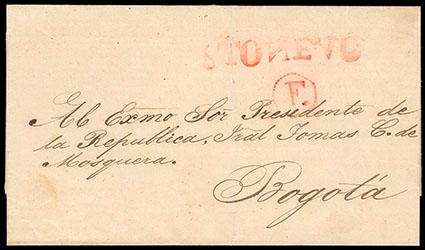 F.
Al Exmo Sor Presidente de
la Republica, Gral Tomas C. de
Mosquera.
Bogotá